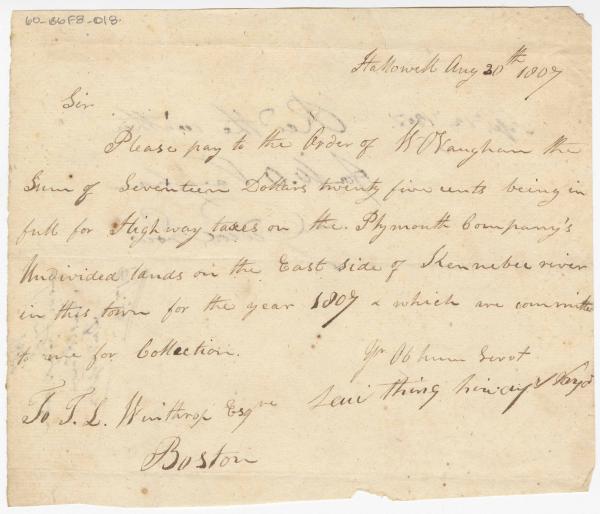 60-B6F8-018
Hallowell Aug 30th 1807
Sir
Please pay to the Order of W Vaughan the
Sum of Seventeen Dollars twenty five cents being in
full for Highway taxes on the Plymouth Company's
Undivided lands on the East side of Kennebec river
in this town for the year 1807 & which are committed
to me for Collection.
Yr Ob hum Servt
Levi thing
To T. L. Winthrop Esqre
Boston